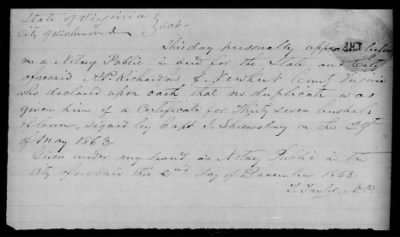 State of Virginia
City of Richmond } To wit
This day personally appeared before
me a Notary Public in and for the State and City
aforesaid, A.P. Richardson of New Kent County Virginia
who declared upon oath that no duplicate was
given him of a Certificate for Thirty seven bushels
of Corn, signed by Capt J. Shrewsbury on the 29th
of May 1863
Given under my hand as Notary Public in the
City aforesaid this 2nd day of December 1863
Taylor N.P.